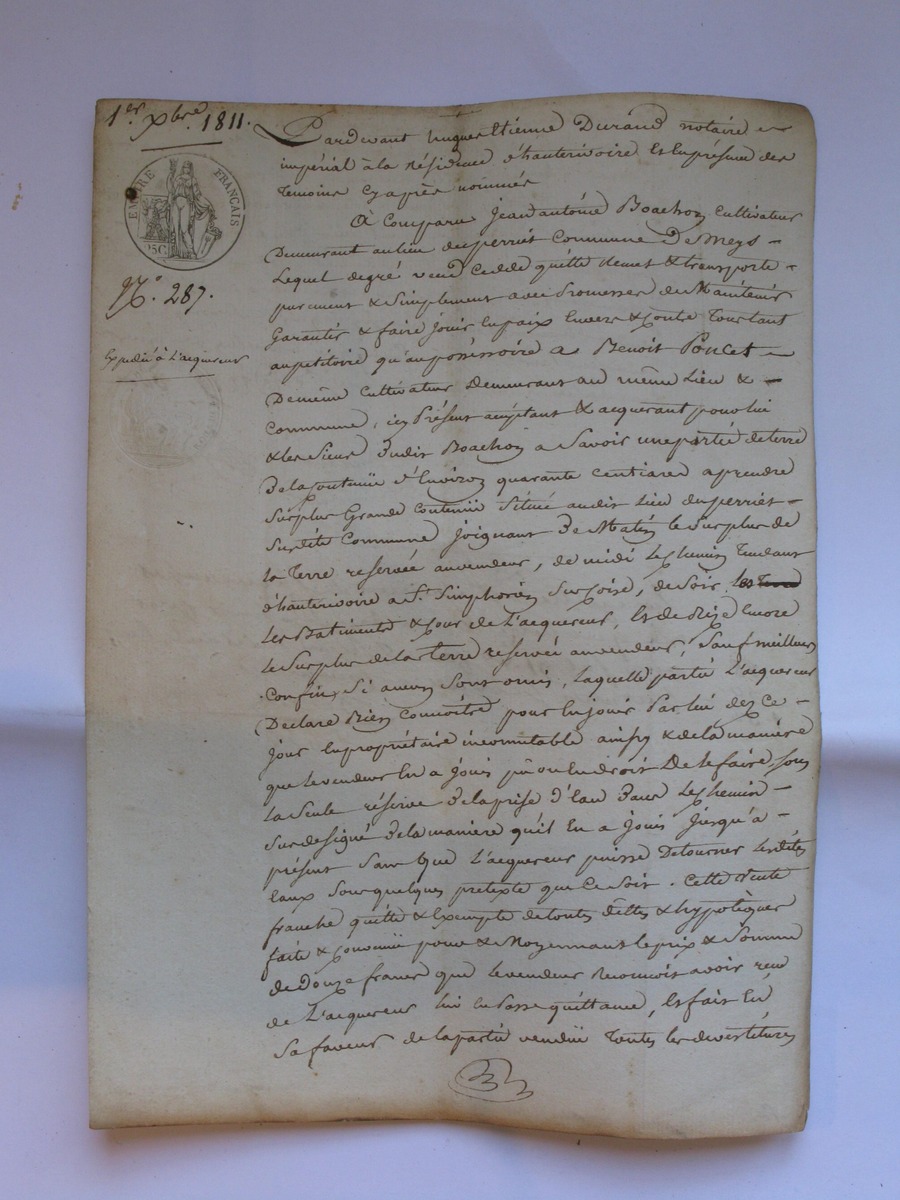 1er Xbre 1811.
EMPIRE FRANÇAIS
25C
No. 287.
Expédié à L'acquereur
Pardevant hugues Etienne Durand notaire
impérial à la Résidence d'hauterivoire Et En présence des
temoins Cy après nommés
A Comparu Jean antoine Boachon Cultivateur
Demeurant au lieu du perriét Commune De Meys
Lequel degré vend Cedde quitte Remet & transporte
purement & Simplement avec Promesses de Maintenir
Garantir & faire jouir En paix Envers & Contre Tous tant
au petitoire qu'au possessoire a Benoit Poncet
Demême Cultivateur Demeurant au même Lieu &
Commune, icy Présent acceptant & acquerant pour lui
& les Siens Dudit Boachon a Savoir une partie de terre
De la Contenüe d'Environ quarante Centiares a prendre
Sur plus Grande Contenüe Située audit Lieu du perriet
Susdite Commune joignant De Matin le Surplus de
la Terre reservée au vendeur, de midi le chemin Tendant
d'hauterivoire a St. Simphorien Sur Coise, de Soir
Les Batiments & Cour de L'acquereur, & de Bize Encore
le Surplus de la terre reservée au vendeur, Sauf meilleurs
Confins Si aucuns Sont omis, laquelle partie L'acquereur
Declare Bien Connoitre pour En jouir Par lui dez Ce
jour En propriétaire incommutable ainsy & de la manière
que le vendeur En a jouis pu ou En droit De le faire, sous
La Seule réserve De la prise d'Eau Dans Le chemin
Sus designé De la manière qu'il En a jouis jusqu'a
présent Sans Que L'acquereur puisse Detourner Les dites
Eaux Sous quelques pretexte que Ce Soit. Cette vente
franche quitte & Exempte de toutes dettes & hypotèques
faite & Convenüe pour & Moyennant le prix & Somme
de Douze francs que le vendeur Reconnois avoir reçu
de L'acquereur lui en Passe quittance, & fait En
Sa faveur de la partie vendüe Toutes les devestitures